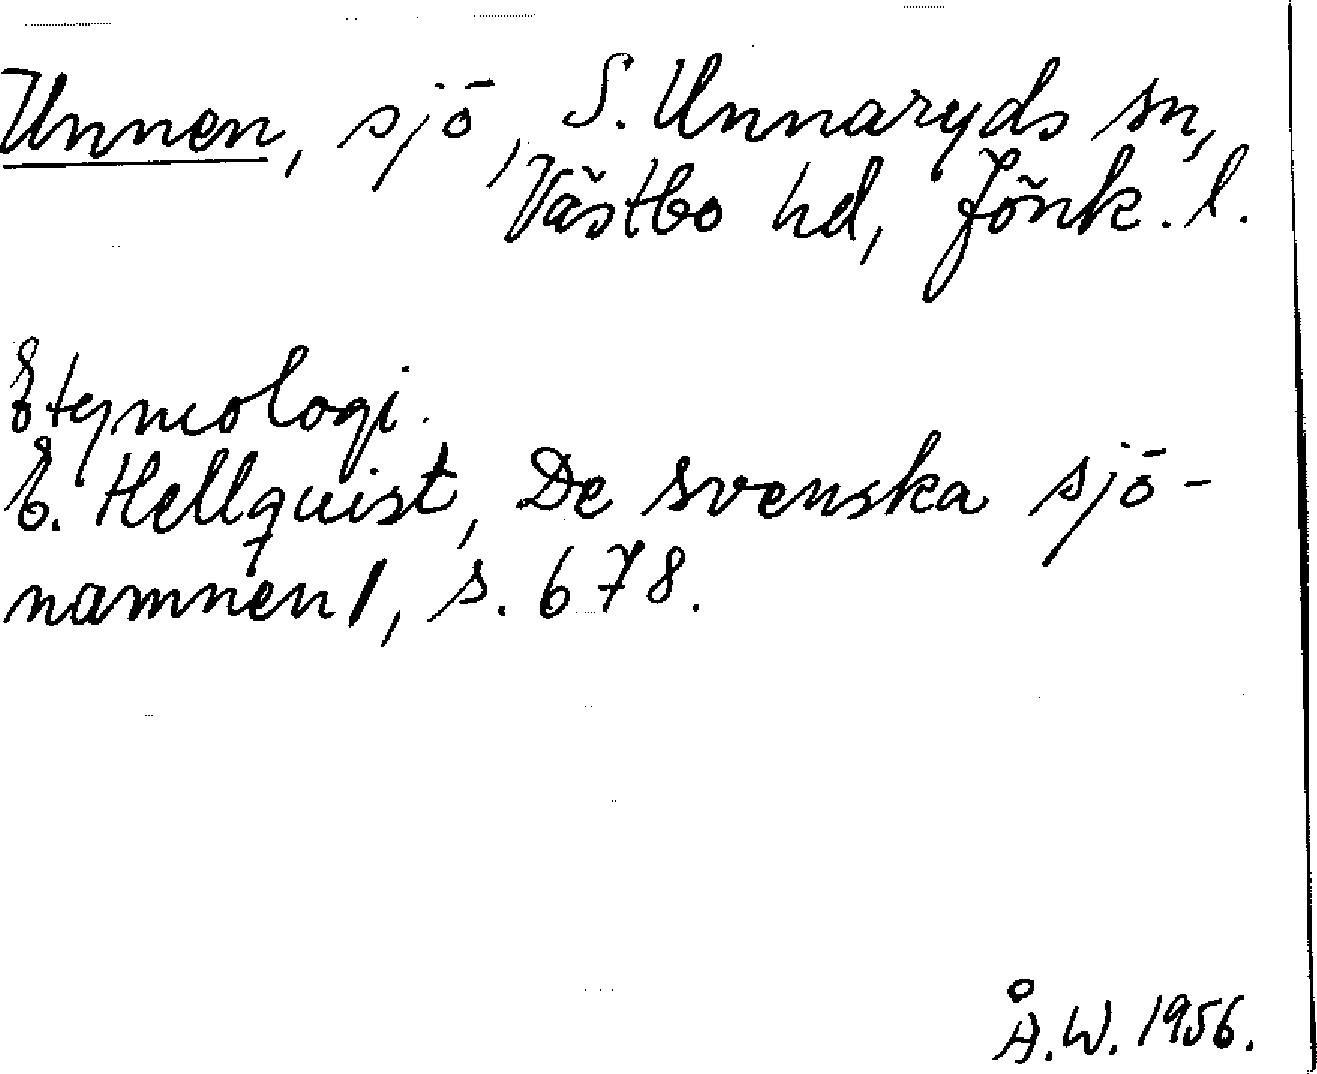 Unnen, sjö, S. Unnaryds sn,
Västbo hd, Jönk. l.
Etymologi.
E. Hellquist, De svenska sjö-
namnen I, s. 678.
Å.W. 1956.